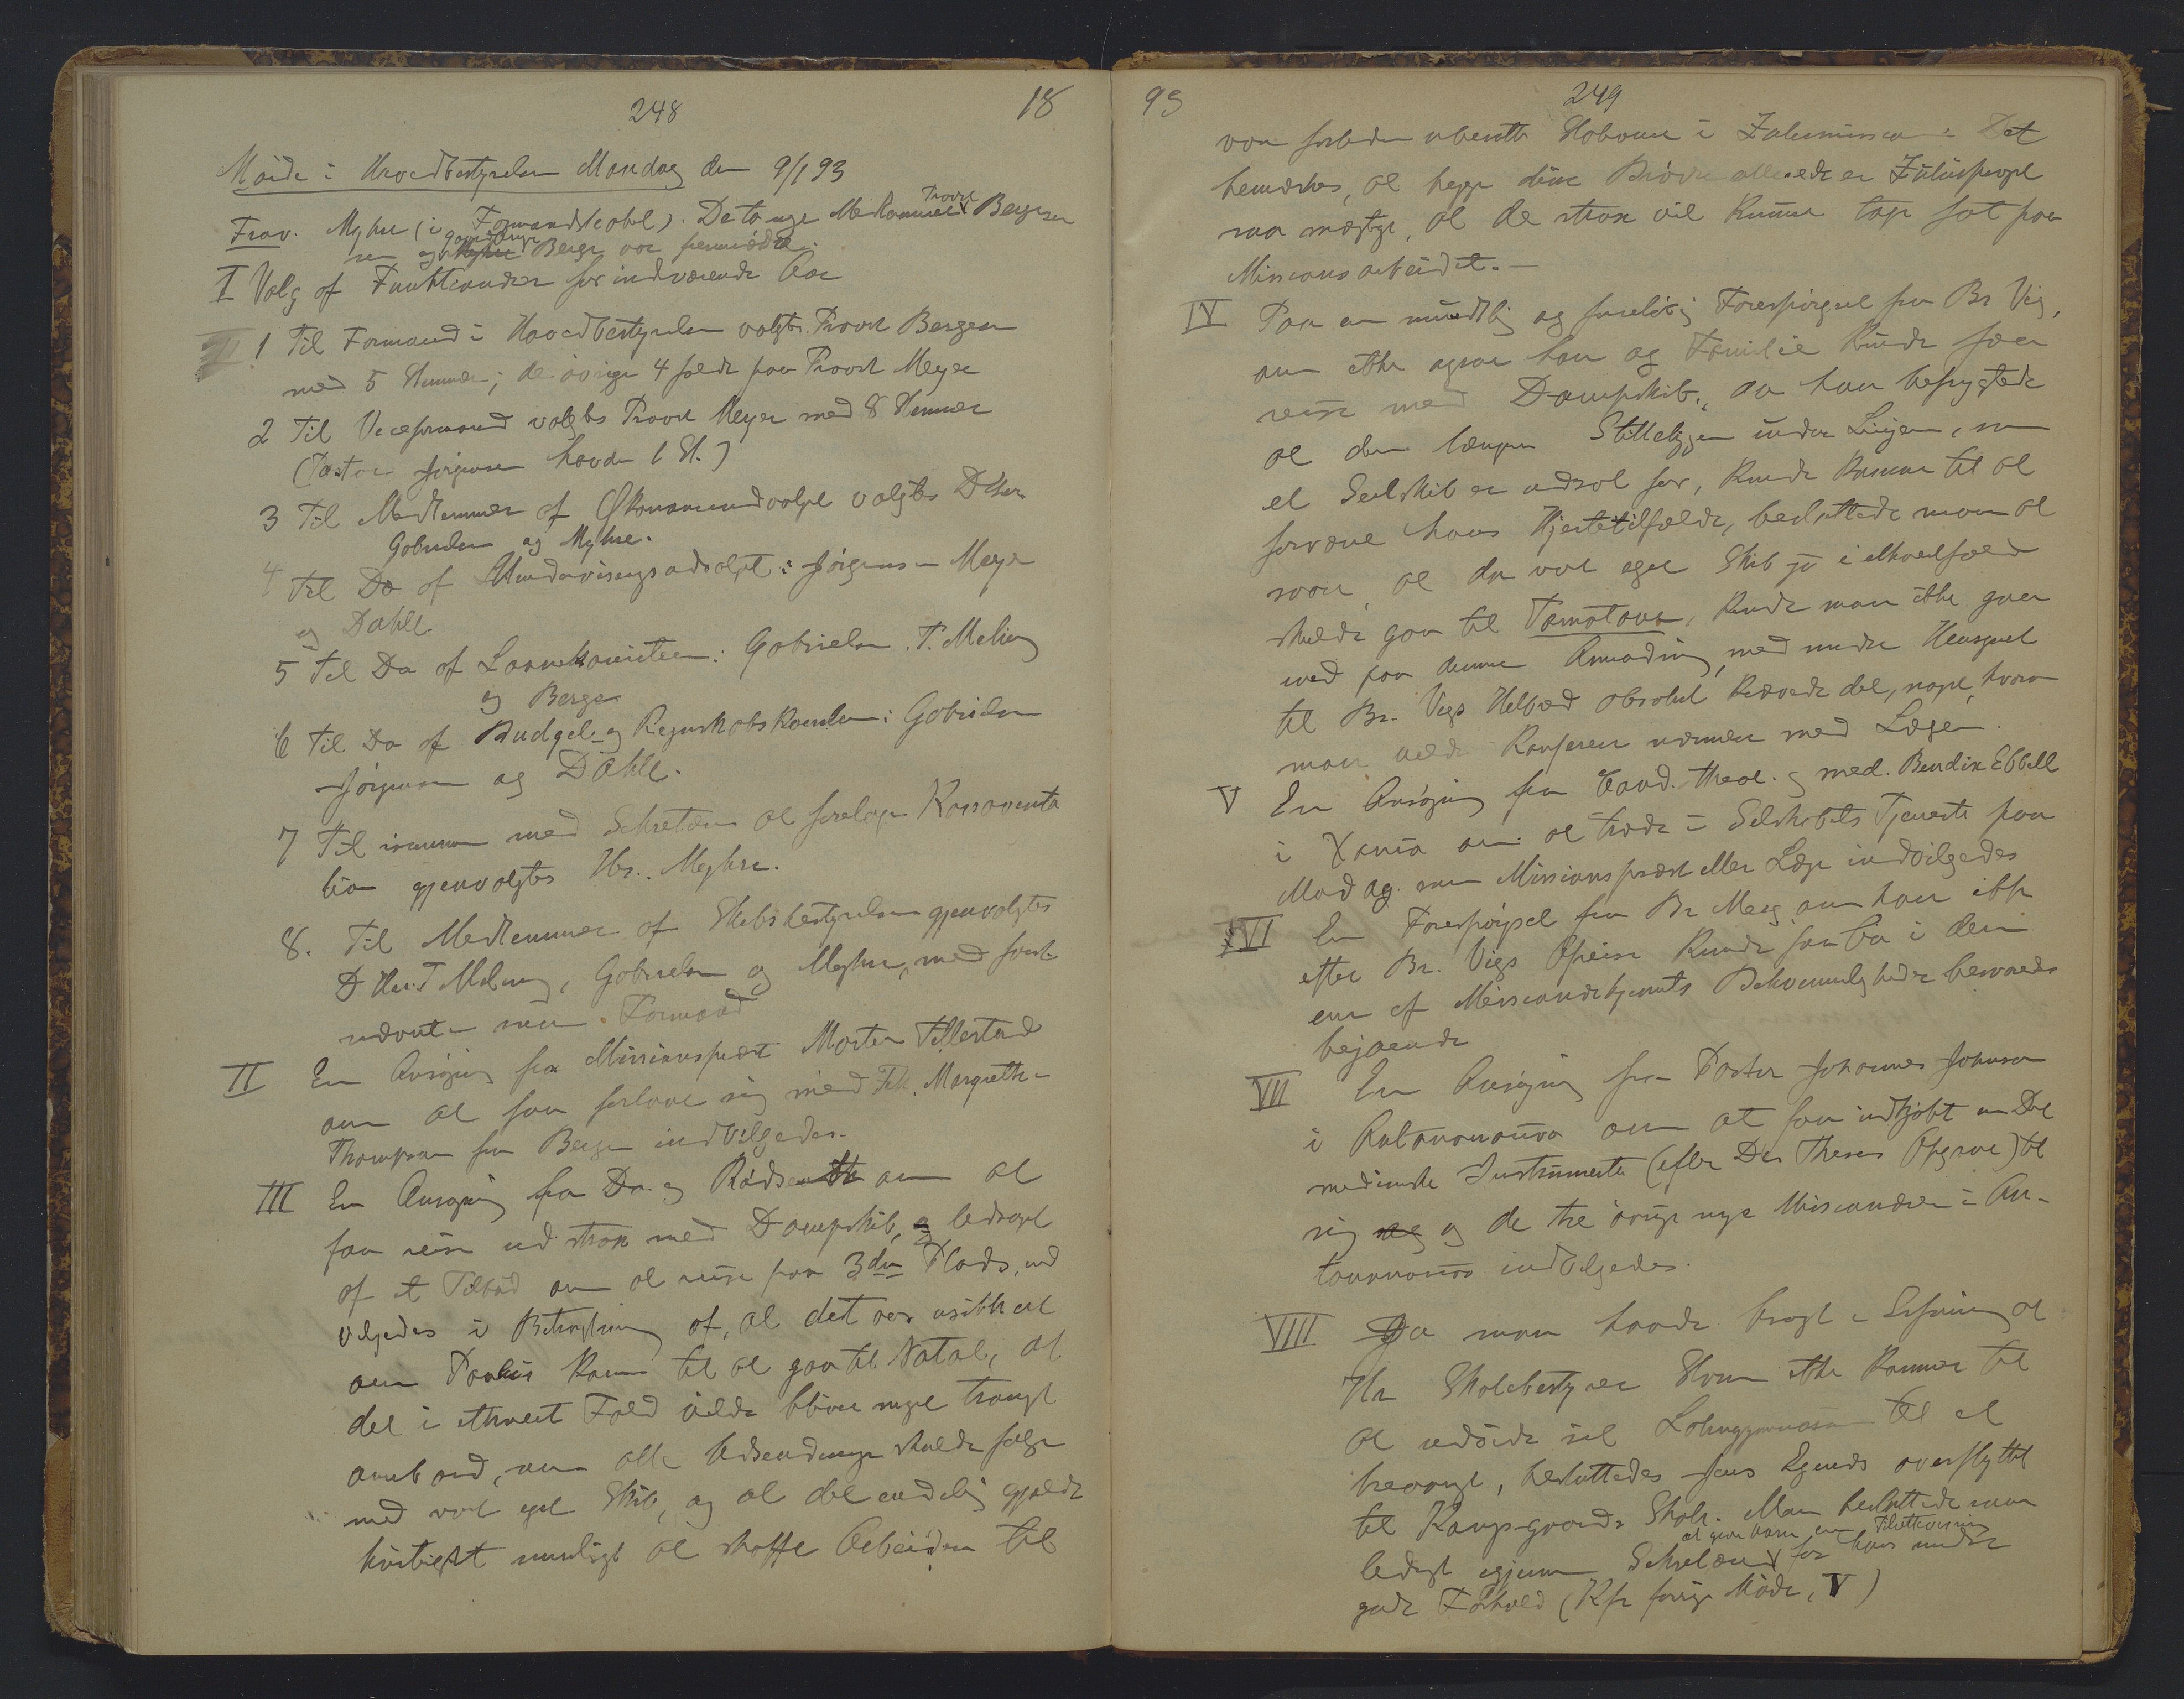 248
18
Møde i Hovedbestyrelsen Mandag den 9/1 93
Frav. Myhre (i Formandskabet). De to nye Medlemmer Provst Bergesen
og Berge var fremmødte.
I Valg af Funktionærer for indværende Aar
1 Til Formand i Hovedbestyrelsen valgtes Provst Bergesen
med 5 Stemmer; de øvrige 4 faldt paa Provst Meyer
2 Til Viceformand valgtes Provst Meyer med 8 Stemmer
(Pastor Jørgensen havde 1 St.)
3 Til Medlemmer af Økonomiudvalget valgtes DHrr
Gabrielsen og Myhre.
4 Til Do af Undervisningsudvalget: Jørgensen Meyer
og Dahle.
5 Til Do af Laanekomiteen: Gabrielsen, T. Meling
og Berge
6 Til Do af Budget- og Regnskabskomiteen: Gabrielsen
Jørgensen og Dahle.
7 Til sammen med Sekretæren at foretage
gjenvalgtes Hr. Myhre.
8. Til Medlemmer af Skibsbestyrelsen gjenvalgtes
DHrr T Meling, Gabrielsen og Myhre, med først-
nævnte som Formand
II En Ansøgning fra Missionsprest Morten Tillestad
om at faa forlove sig med Frk. Margrethe
Thompson fra Bergen indvilgedes.
III En Ansøgning fra Do og Rødseth om at
faa reise ud strax med Dampskib, ledsaget
af et Tilbud om at reise paa 3die Plads, ind
vilgedes i Betragtning af, at det var usikkert
om Paulus kom til at gaa til Natal, at
det i ethvert Fald vilde blive meget trangt
ombord, om alle Udsendinge skulde følge
med vort eget Skib, og at det endelig gjældt
hurtigst muligt at skaffe Arbeidere til
93
249
vor forleden ubesatte Stationer i Zulumissionen. Det
bemærkes, at begge disse Brødre allerede er Zulusproget
saa mægtige, at de strax vil kunne tage fat paa
Missionsarbeidet.—
IV Paa en mundtlig og foreløbig Forespørgsel fra Br Vig,
om ikke ogsaa han og Familie kunde faa
reise med Dampskib, da han befrygtede
at den længere Stilleliggen under Linjen, som
et Seilskib er udsat for, kunde komme til at
forværre hans Hjertetilfælde, besluttede man at
svare, at da vort eget Skib jo i ethvertfald
skulde gaa til Tamatave, kunde man ikke gaa
ind paa denne Anmodning, med mindre Hensynet
til Br. Vigs Helbred absolut krævede det, noget, hvorom
man vilde konferere nærmere med Lægen.
V En Ansøgning fra Cand. theol. og med. Bendix Ebbell
i Xania om at træde i Selskabets Tjeneste paa
Madag. som Missionsprest eller Læge indvilgedes
VI En Forespørgsel fra Br Meeg om han ikke
efter Br. Vigs Afreise kunde faa bo i den
ene af Missionærhjemmets Bekvemmeligheder besvaredes
bejaende
VII En Ansøgning fra Pastor Johannes Johnson
i Antananarivo om at faa indkjøbt en Del
medicinske Instrumenter (efter Dr Thesens Opgave) til
sig og de tre øvrige nye Missionærer i An-
tananarivo indvilgedes.
VIII Da man havde bragt i Erfaring at
Hr Skolebestyrer ikke kommer til
at udvide sit Latingymnasium til et
treaarigt, besluttedes Jens overflyttet
til Kongsgaards Skole. Man besluttede som
ledigt igjennem Sekretæren at give ham en Tilrettevisning for hans mindre
gode Forhold (Kfr forrige Møde, V)